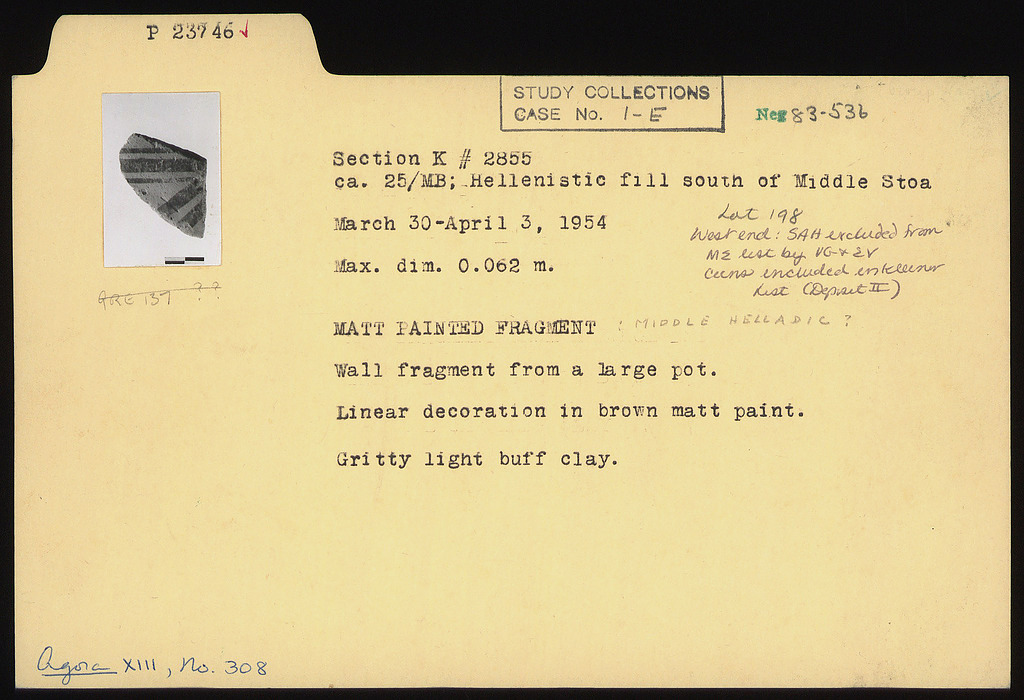 P 23746 ✓
STUDY COLLECTIONS
CASE No. 1-E
Neg 83-536
Section K # 2855
ca. 25/MB; Hellenistic fill south of Middle Stoa
March 30-April 3, 1954
Lot 198
West end: SAH excluded from
ME list by VG + EV
included in
list (Deposit II)
Max. dim. 0.062 m.
ARE 137 ??
MATT PAINTED FRAGMENT : MIDDLE HELLADIC ?
Wall fragment from a large pot.
Linear decoration in brown matt paint.
Gritty light buff clay.
Agora XIII, No. 308